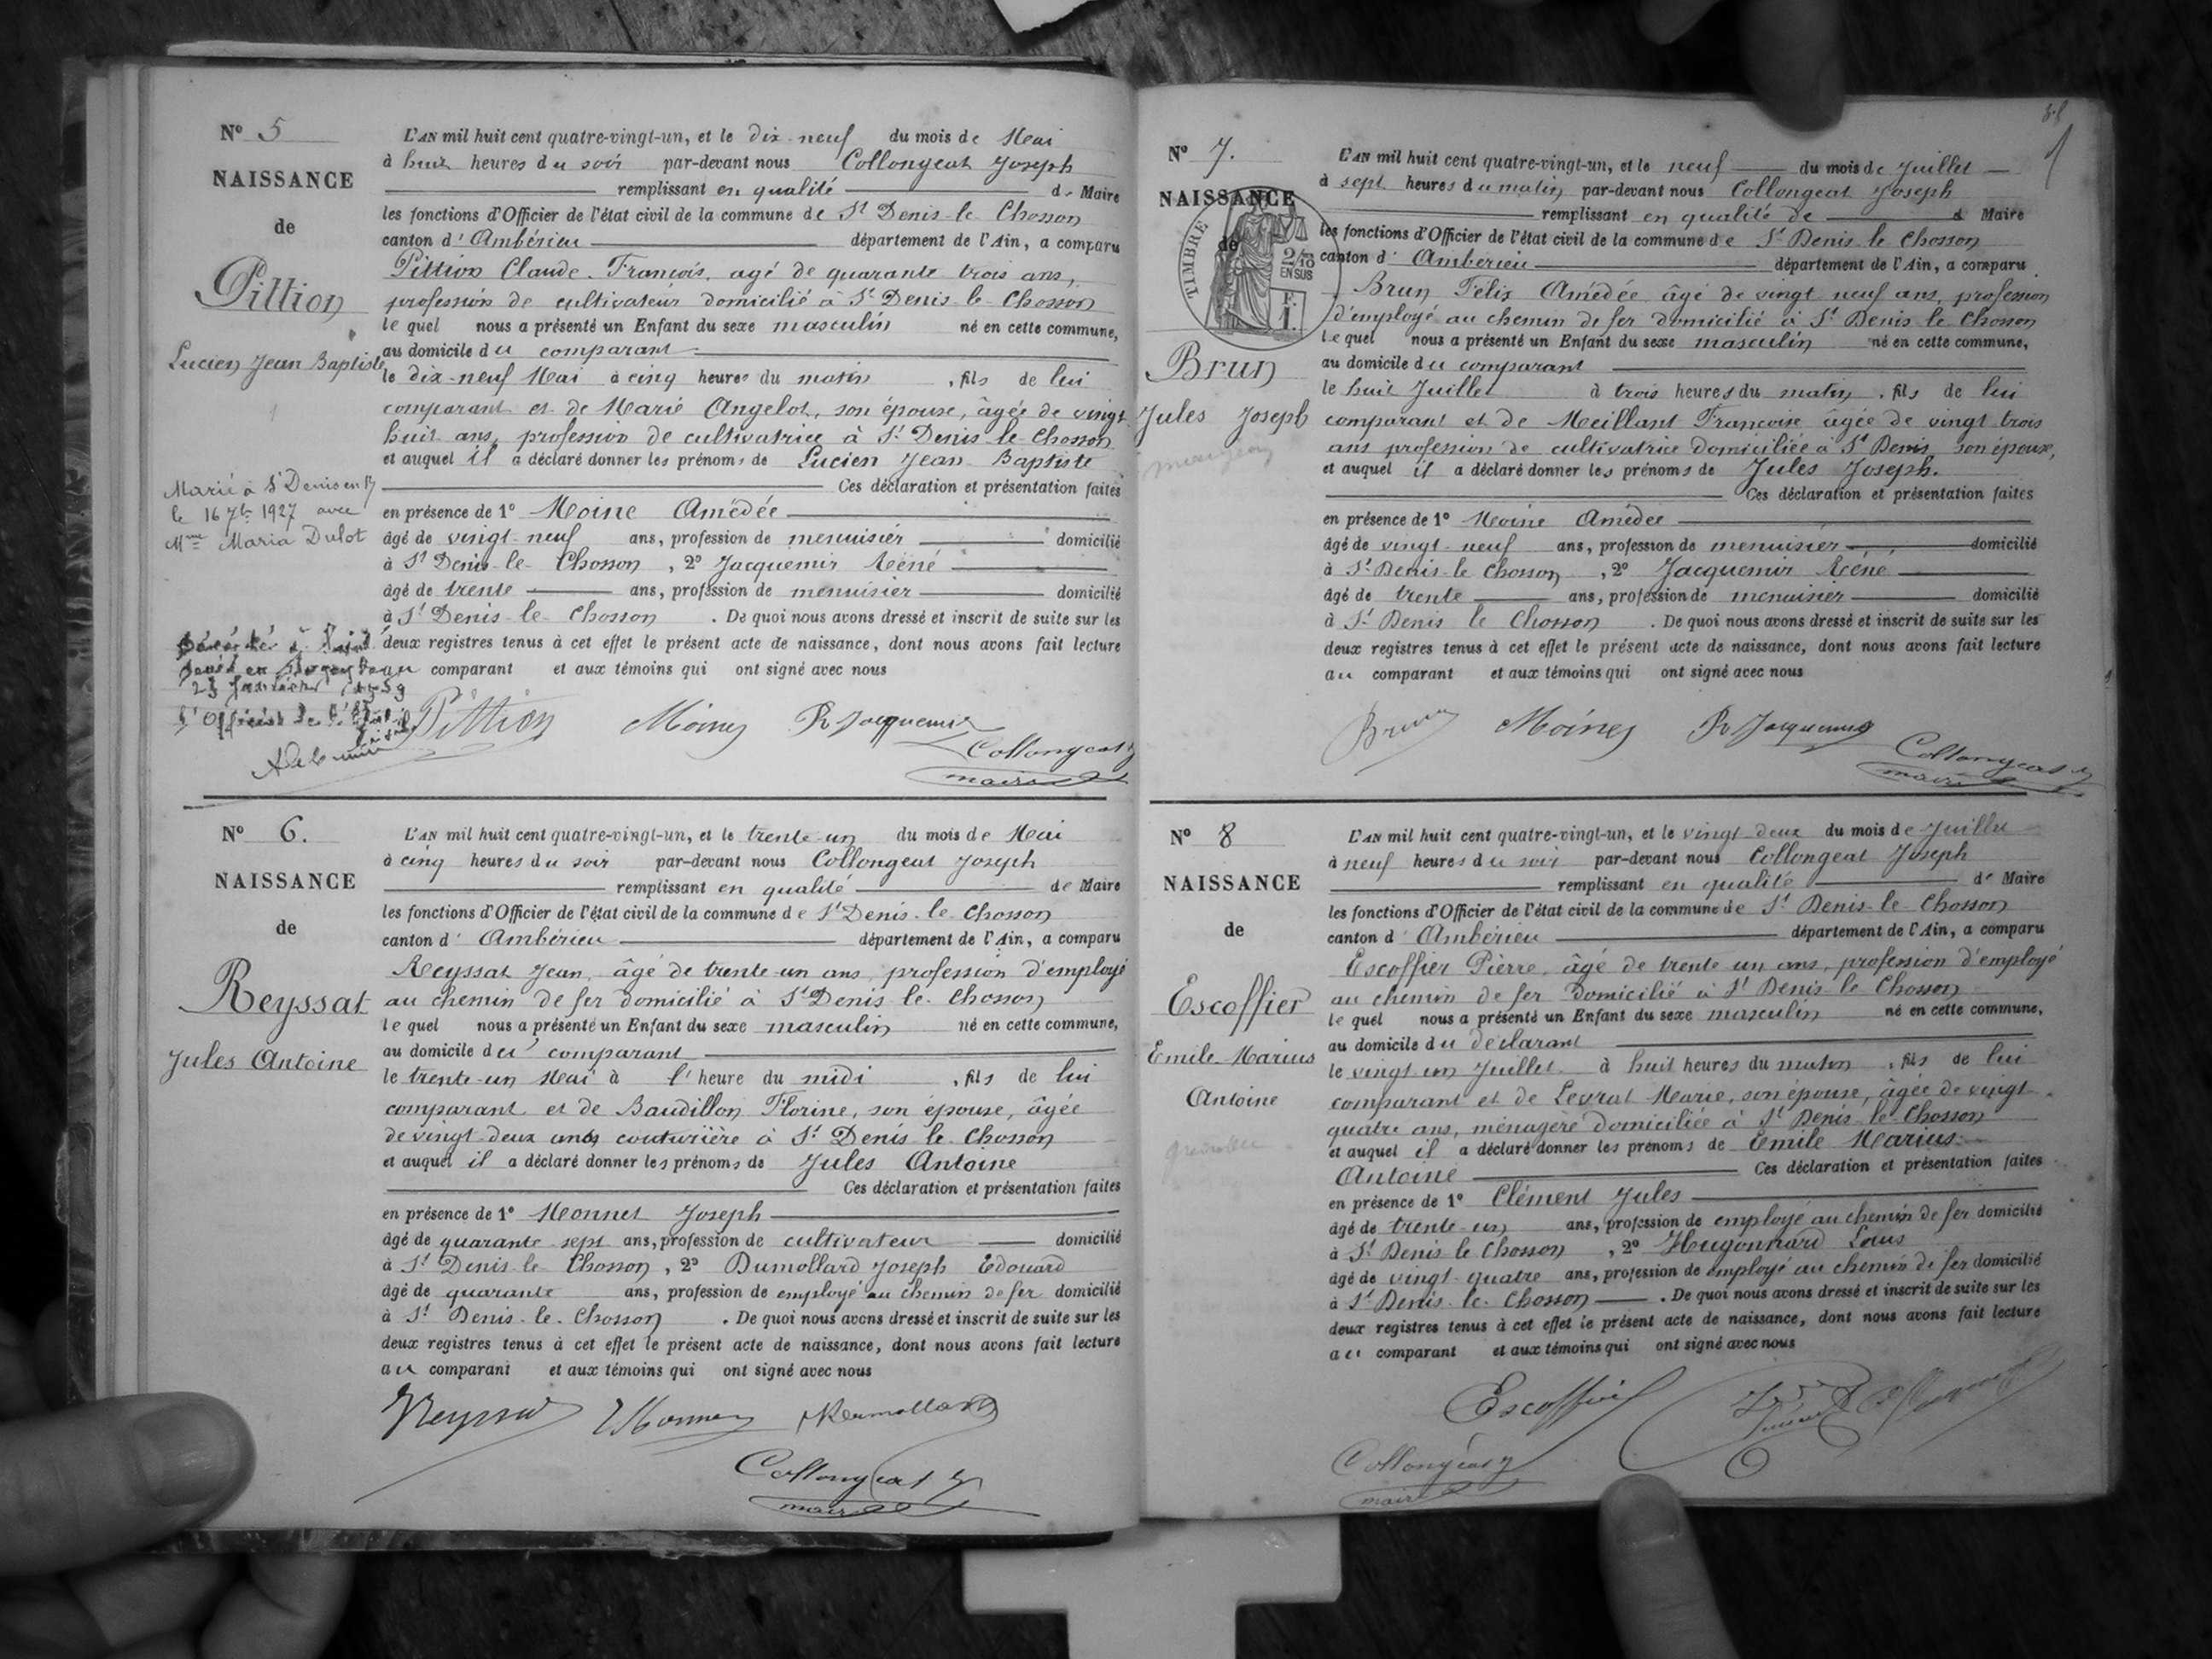 N° 5
NAISSANCE
de
Pittion
Lucien Jean Baptiste
Marié à St Denis en B
le 16 7bre 1927 avec
Mme Maria Dulot
L'AN mil huit cent quatre-vingt-un, et le dix-neuf du mois de Mai
à huit heures du soir par-devant nous Collongeat Joseph
remplissant en qualité de Maire
les fonctions d'Officier de l'état civil de la commune de St Denis-le-Chosson
canton d'Ambérieu département de l'Ain, a comparu
Pittion Claude-François, agé de quarante trois ans,
profession de cultivateur domicilié à St Denis-le-Chosson
lequel nous a présenté un Enfant du sexe masculin né en cette commune,
au domicile du comparant
le dix-neuf Mai à cinq heures du matin, fils de lui
comparant et de Marie Angelot, son épouse, âgée de vingt
huit ans, profession de cultivatrice à St Denis-le-Chosson
et auquel il a déclaré donner les prénoms de Lucien Jean-Baptiste
Ces déclaration et présentation faites
en présence de 1° Moine Amédée
âgé de vingt-neuf ans, profession de menuisier domicilié
à St Denis-le-Chosson, 2° Jacquemir Réné
âgé de trente ans, profession de menuisier domicilié
à St Denis-le-Chosson. De quoi nous avons dressé et inscrit de suite sur les
deux registres tenus à cet effet le présent acte de naissance, dont nous avons fait lecture
au comparant et aux témoins qui ont signé avec nous
Décédé à Saint
Denis en Bugey le
23 Janvier 1959
L'Officier de l'État civil
Pittion Moine R Jacquemir
Collongeat J
maire
N° 6.
NAISSANCE
de
Reyssat
Jules Antoine
L'AN mil huit cent quatre-vingt-un, et le trente-un du mois de Mai
à cinq heures du soir par-devant nous Collongeat Joseph
remplissant en qualité de Maire
les fonctions d'Officier de l'état civil de la commune de St Denis-le-Chosson
canton d'Ambérieu département de l'Ain, a comparu
Reyssat Jean, âgé de trente-un ans, profession d'employé
au chemin de fer domicilié à St Denis-le-Chosson
lequel nous a présenté un Enfant du sexe masculin né en cette commune,
au domicile du comparant
le trente-un Mai à l'heure du midi, fils de lui
comparant et de Baudillon Florine, son épouse, âgée
de vingt-deux ans couturière à St Denis-le-Chosson
et auquel il a déclaré donner les prénoms de Jules Antoine
Ces déclaration et présentation faites
en présence de 1° Monnet Joseph
âgé de quarante-sept ans, profession de cultivateur domicilié
à St Denis-le-Chosson, 2° Dumollard Joseph Edouard
âgé de quarante ans, profession de employé au chemin de fer domicilié
à St Denis-le-Chosson. De quoi nous avons dressé et inscrit de suite sur les
deux registres tenus à cet effet le présent acte de naissance, dont nous avons fait lecture
au comparant et aux témoins qui ont signé avec nous
Reyssat Monnet Dumollard
Collongeat J
maire
N° 7.
NAISSANCE
de
TIMBRE
2/10
EN SUS
F.
1.
Brun
Jules Joseph
L'AN mil huit cent quatre-vingt-un, et le neuf du mois de Juillet
à sept heures du matin par-devant nous Collongeat Joseph
remplissant en qualité de d Maire
les fonctions d'Officier de l'état civil de la commune de St Denis-le-Chosson
canton d'Ambérieu département de l'Ain, a comparu
Brun Félix Amédée âgé de vingt neuf ans, profession
d'employé au chemin de fer domicilié à St Denis-le-Chosson
lequel nous a présenté un Enfant du sexe masculin né en cette commune,
au domicile du comparant
le huit Juillet à trois heures du matin, fils de lui
comparant et de Meillant Françoise âgée de vingt trois
ans profession de cultivatrice domiciliée à St Denis son épouse,
et auquel il a déclaré donner les prénoms de Jules Joseph.
Ces déclaration et présentation faites
en présence de 1° Moine Amédée
âgé de vingt-neuf ans, profession de menuisier domicilié
à St Denis-le-Chosson, 2° Jacquemir Réné
âgé de trente ans, profession de menuisier domicilié
à St Denis le Chosson. De quoi nous avons dressé et inscrit de suite sur les
deux registres tenus à cet effet le présent acte de naissance, dont nous avons fait lecture
au comparant et aux témoins qui ont signé avec nous
Brun Moine R Jacquemir
Collongeat J
maire
N° 8
NAISSANCE
de
Escoffier
Emile-Marius
Antoine
L'AN mil huit cent quatre-vingt-un, et le vingt-deux du mois de Juillet
à neuf heures du soir par-devant nous Collongeat Joseph
remplissant en qualité de Maire
les fonctions d'Officier de l'état civil de la commune de St Denis-le-Chosson
canton d'Ambérieu département de l'Ain, a comparu
Escoffier Pierre, âgé de trente un ans, profession d'employé
au chemin de fer domicilié à St Denis-le-Chosson
lequel nous a présenté un Enfant du sexe masculin né en cette commune,
au domicile du déclarant
le vingt-un Juillet à huit heures du matin, fils de lui
comparant et de Levrat Marie, son épouse, âgée de vingt
quatre ans, ménagère domiciliée à St Denis-le-Chosson
et auquel il a déclaré donner les prénoms de Emile Marius
Antoine Ces déclaration et présentation faites
en présence de 1° Clément Jules
âgé de trente-un ans, profession de employé au chemin de fer domicilié
à St Denis le Chosson, 2° Hugonnard Louis
âgé de vingt-quatre ans, profession de employé au chemin de fer domicilié
à St Denis-le-Chosson. De quoi nous avons dressé et inscrit de suite sur les
deux registres tenus à cet effet le présent acte de naissance, dont nous avons fait lecture
au comparant et aux témoins qui ont signé avec nous
Escoffier
Collongeat J
maire